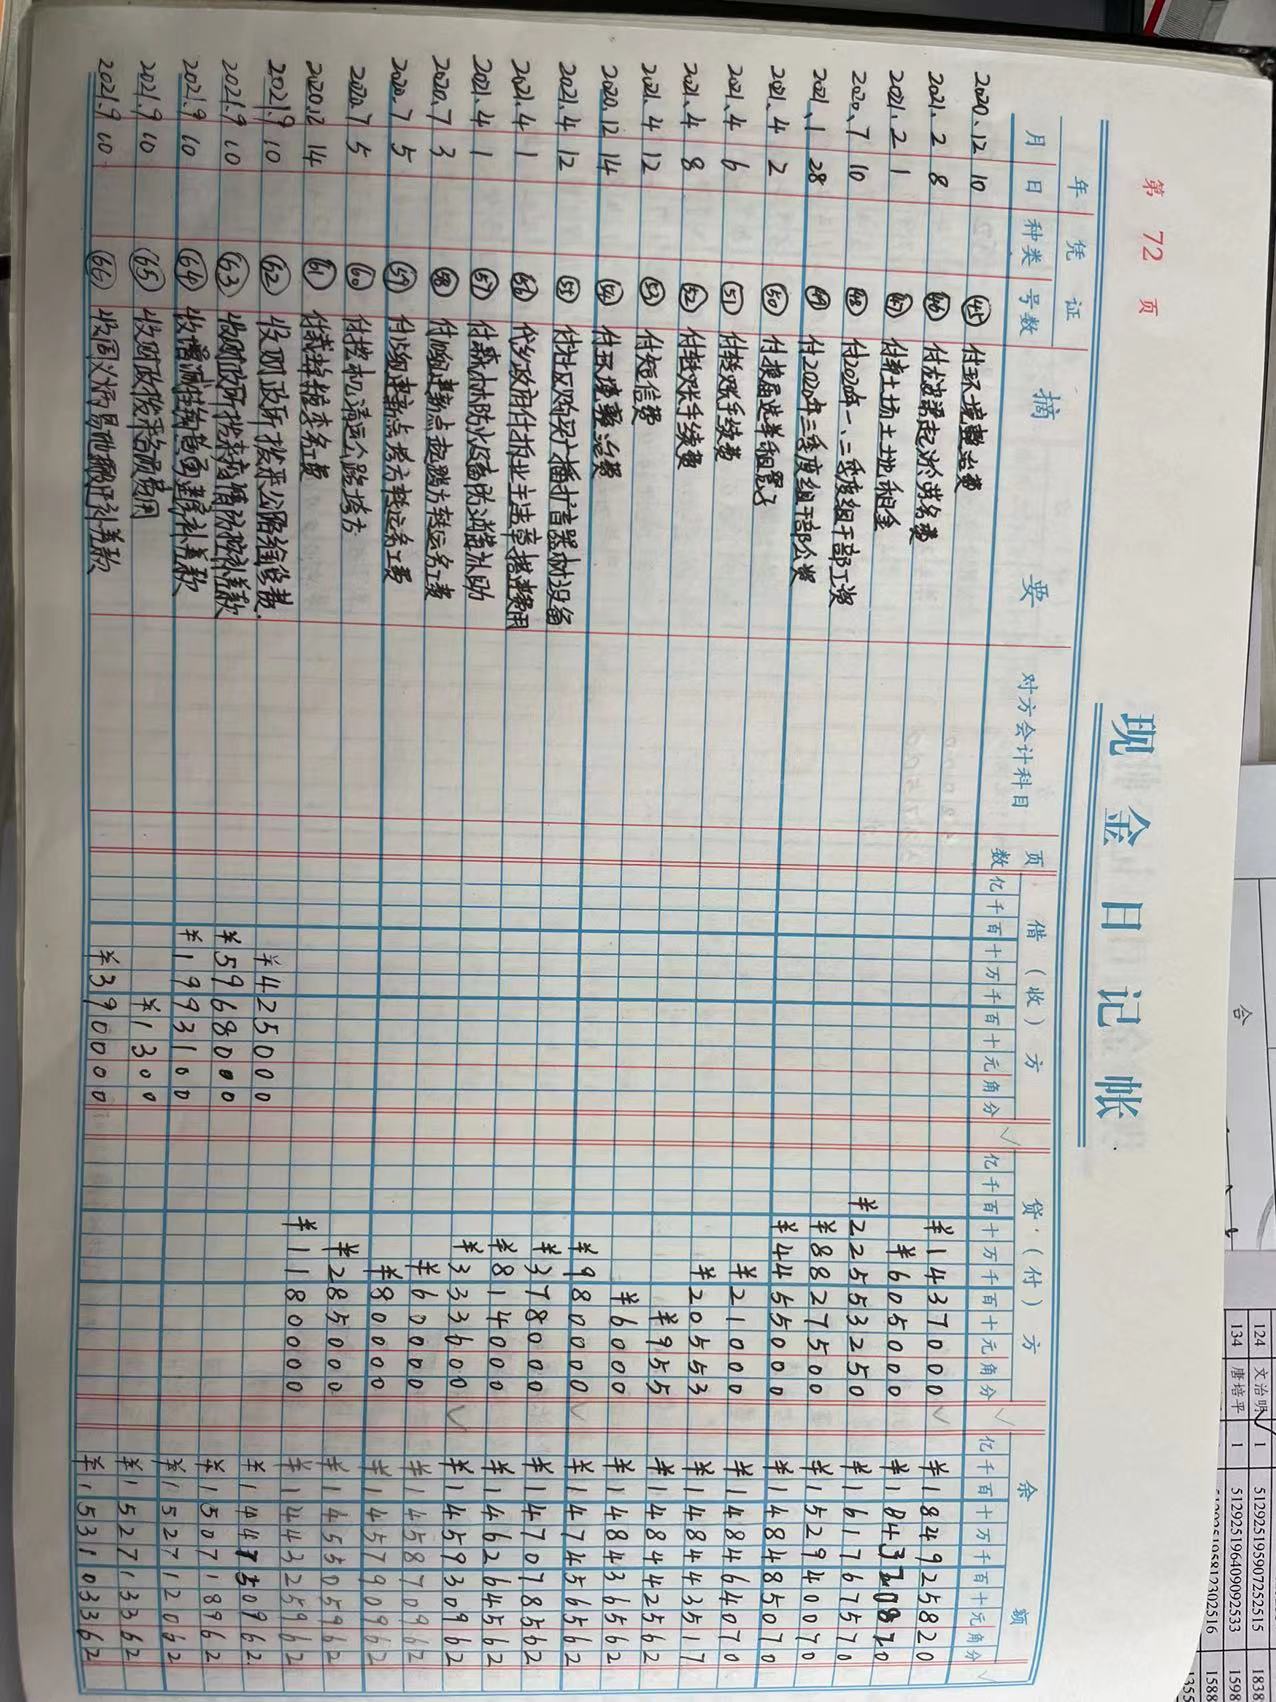 第 72 页
现金日记帐
年 凭证 摘要 对方会计科目 页数 借(收)方 贷(付)方 余额
月 日 种类 号数 亿千百十万千百十元角分 √ 亿千百十万千百十元角分 √ 亿千百十万千百十元角分 √
2020.12 10 ㊺ 付环境整治费 ¥1437000 √ ¥184925820
2021.2 8 ㊻ 付劳务费 ¥605000 ¥184320820
2021.2 1 ㊼ 付弃土场土地租金 ¥22553250 ¥161767570
2020.7 10 ㊽ 付2020年一、二季度组干部工资 ¥8827500 ¥152940070
2021.1 28 ㊾ 付2020年三季度组干部公资 ¥4455000 ¥148485070
2021.4 2 ㊿ 付换届选举租凳子 ¥21000 ¥148464070
2021.4 6 (51) 付转账手续费 ¥20553 ¥148443517
2021.4 8 (52) 付转账手续费 ¥955 ¥148442562
2021.4 12 (53) 付短信费 ¥6000 ¥148436562
2020.12 14 (54) 付环境整治费 ¥980000 √ ¥147456562
2021.4 12 (55) 付社区购买广播扩音器材设备 ¥378000 ¥147078562
2021.4 1 (56) 代乡政府付拆业主法草搭建费用 ¥814000 ¥146264562
2021.4 1 (57) 付森林防火宣防消毒补助 ¥333600 √ ¥145930962
2020.7 3 (58) 付转运务工费 ¥60000 ¥145870962
2020.7 5 (59) 付转运务工费 ¥80000 ¥145790962
2020.7 5 (60) 付挖机清运公路垮方 ¥285000 ¥145505962
2020.12 14 (61) 付栽务工费 ¥1180000 ¥144325962
2021.9 10 (62) 收财政所拨来公路维修款. ¥425000 ¥144750962
2021.9 10 (63) 收财政所拨来补差款 ¥5968000 ¥150718962
2021.9 10 (64) 收增减挂钩补差款 ¥1993100 ¥152712062
2021.9 10 (65) 收财政拨来费用 ¥1300 ¥152713362
2021.9 10 (66) 收国义炳易地搬迁补差款 ¥390000 ¥153103362
合
124 文治明 1 512925195907252515 1838
134 唐培平 1 512925196409092533 1598